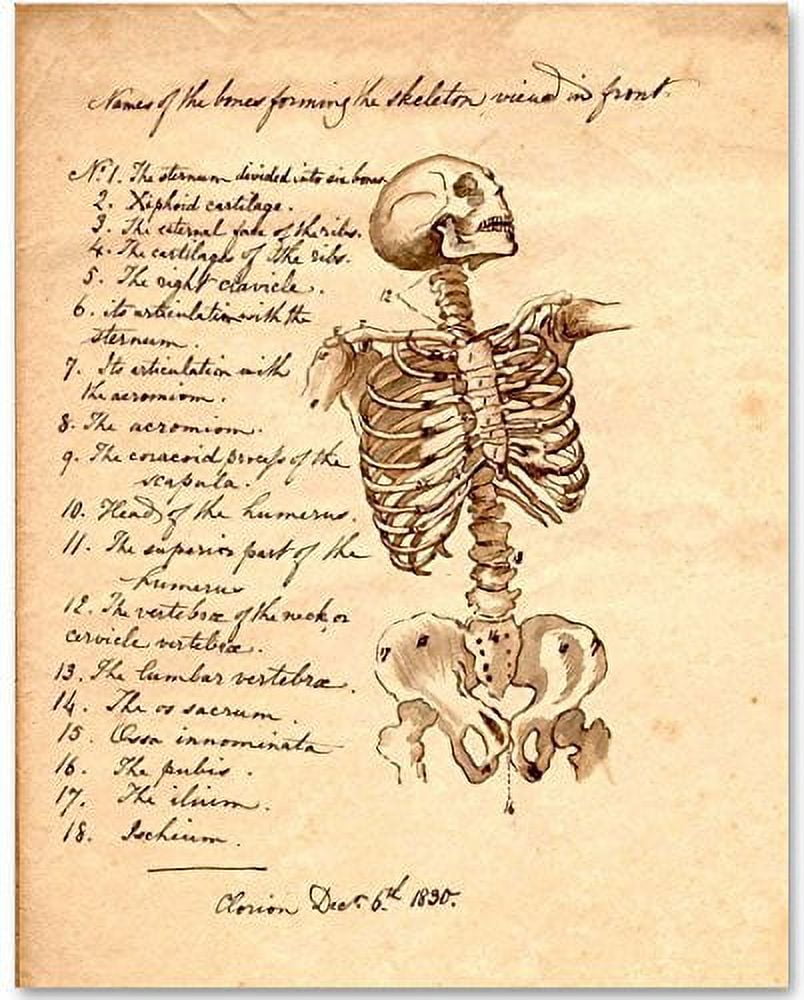 Names of the bones forming the skeleton, viewed in front.
No. 1. The sternum divided into six bones.
2. Xiphoid cartilage.
3. The external face of the ribs.
4. The cartilages of the ribs.
5. The right clavicle.
6. its articulation with the
sternum.
7. Its articulation with
the acromiom.
8. The acromiom.
9. The coracoid process of the
scapula.
10. Head of the humerus.
11. The superior part of the
humerus
12. The vertebræ of the neck, or
cervicle vertebræ.
13. The lumbar vertebræ.
14. The os sacrum.
15. Ossa innominata
16. The pubis.
17. The ilium.
18. Ischium.
12
13
14
17
16
Dec. 6th 1830.